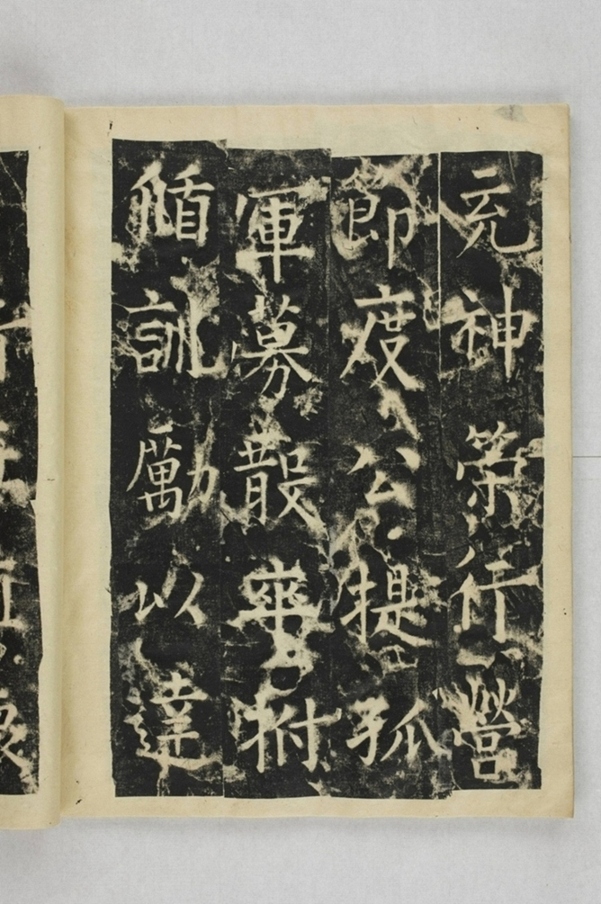 充神策行營
節度公提孤
軍募散卒拊
循訓勵以達